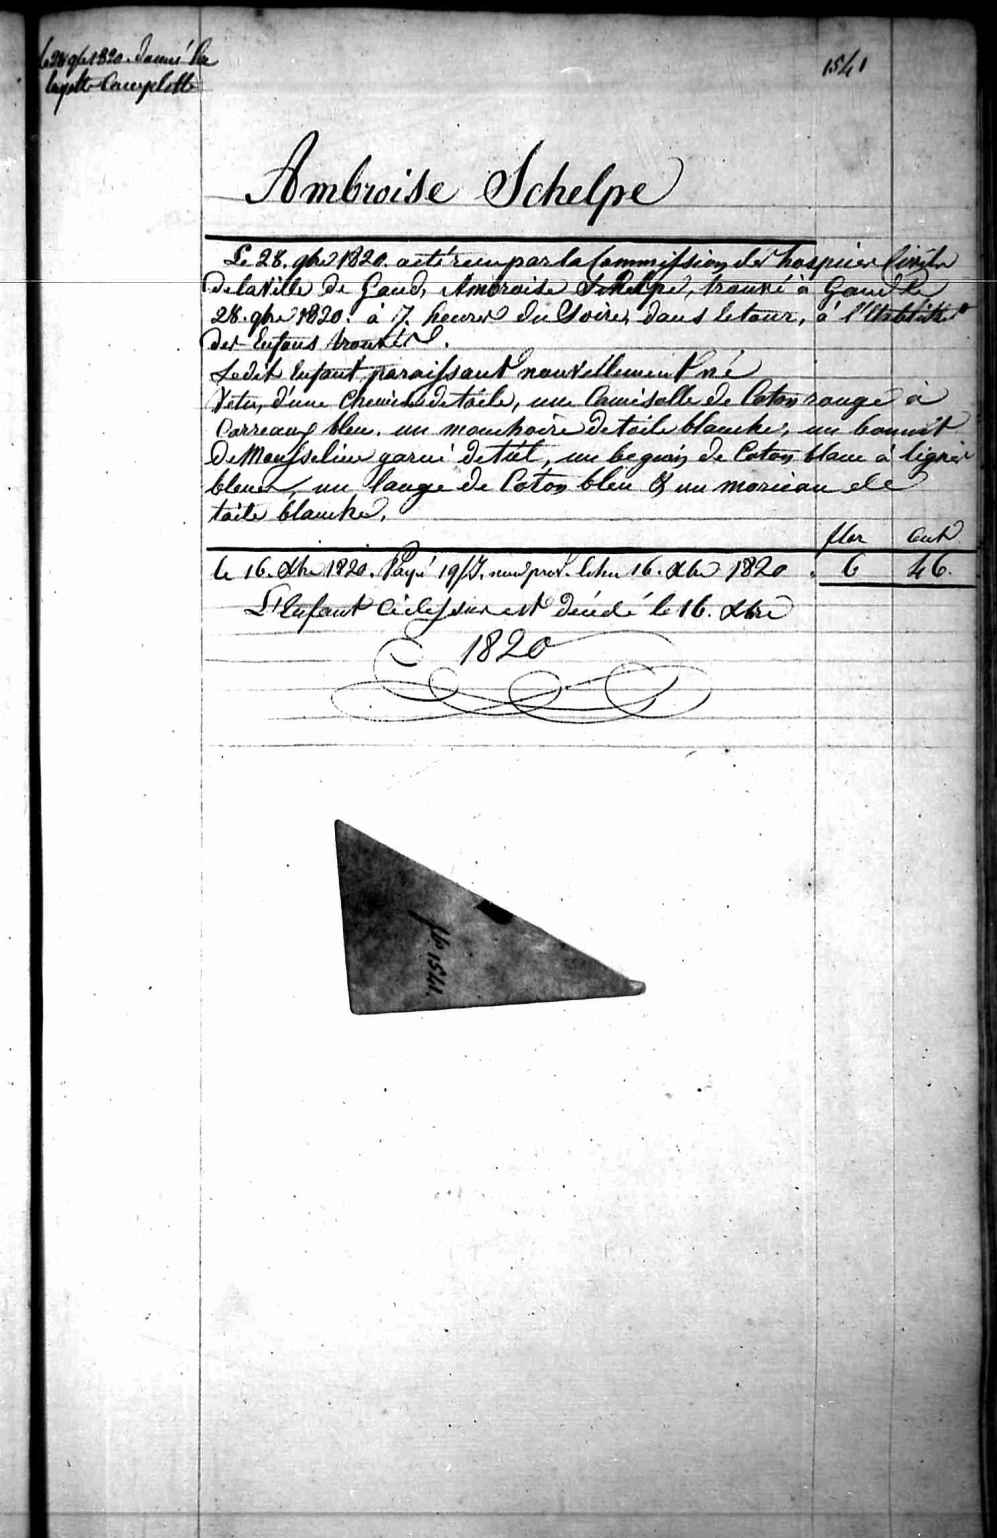 le 28 9bre 1820. donné la
layette Complette
1541
Ambroise Schelpe
Le 28. 9bre 1820. a été reçu par la Commission des hospices Civils
de la Ville de Gand, Ambroise Schelpe, trouvé à Gand le
28. 9bre 1820. à 7. heures du Soir, dans le tour, à l'
des Enfans trouvés.
Ledit Enfant paraissant nouvellement né
Vetu, d'une Chemise de toile, une Camisolle de Coton rouge à
Carreaux bleu. un mouchoire de toile blanche, un bonnet
de Mousseline garni de tul, un beguin de Coton blanc à lignes
bleues, un lange de Coton bleu & un morceau de
toile blanche.
flor cent
le 16. Xbre 1820. Payé 19/J. 16. Xbre 1820 . 6 46.
L'Enfant ci dessus est décédé le 16. Xbre
1820
fo 1541.